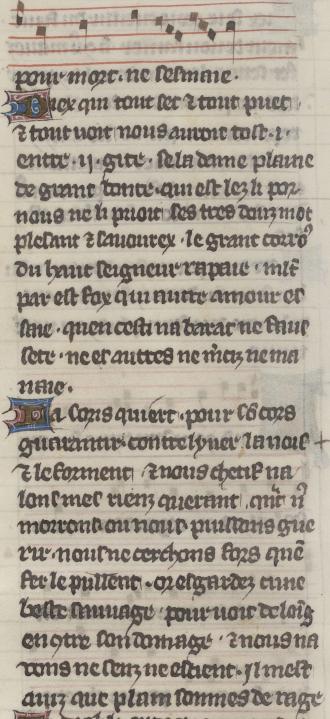 pour mort. ne sesmaie.
Diex qui tout set ⁊ tout puet
⁊ tout voit nous auroit tost .i.
entre .ij. gite. se la dame plaine
de grant bonte. qui est lez li por
nous ne li prioit ses tres douz mot
plesant ⁊ sauourex. le grant corro
du haut seigneur rapaie. mlt
par est fox qui autre amour es
saie. quen cesti na barat ne faus
sete. ne es autres ne merci ne ma
naie.
La soris quiert. pour son cors
guarantir. contre lyuer la nois
⁊ le forment. ⁊ nous chetif na
lons mes riens querant. quant nous
morrons ou nous puissons gue
rir. nous ne cerchons fors quen
fer le pullent. or esgardez cune
beste sauuage. pour voit de loig
en9tre son domage. ⁊ nous na
vons ne senz ne escient. Il mest
auiz que plain sommes de rage